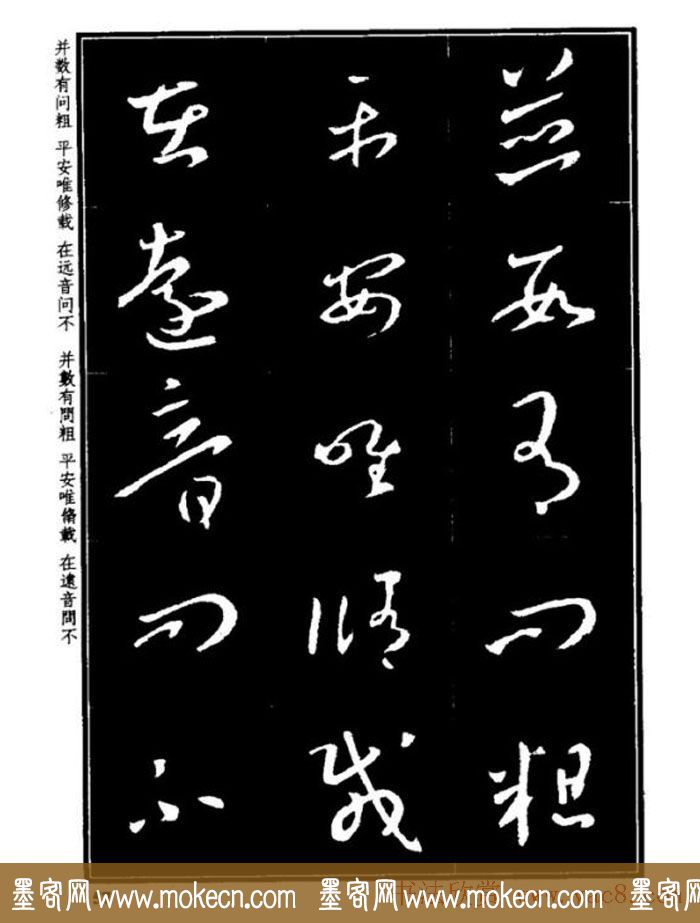 并数有问粗
平安唯修载
在远音问不
并數有問粗
平安唯脩載
在遠音問不
并數有問粗
平安唯脩載
在遠音問不
墨客网 www.mokecn.com 墨客网 www.mokecn.com 墨客网 www.mokecn.com
书法欣赏